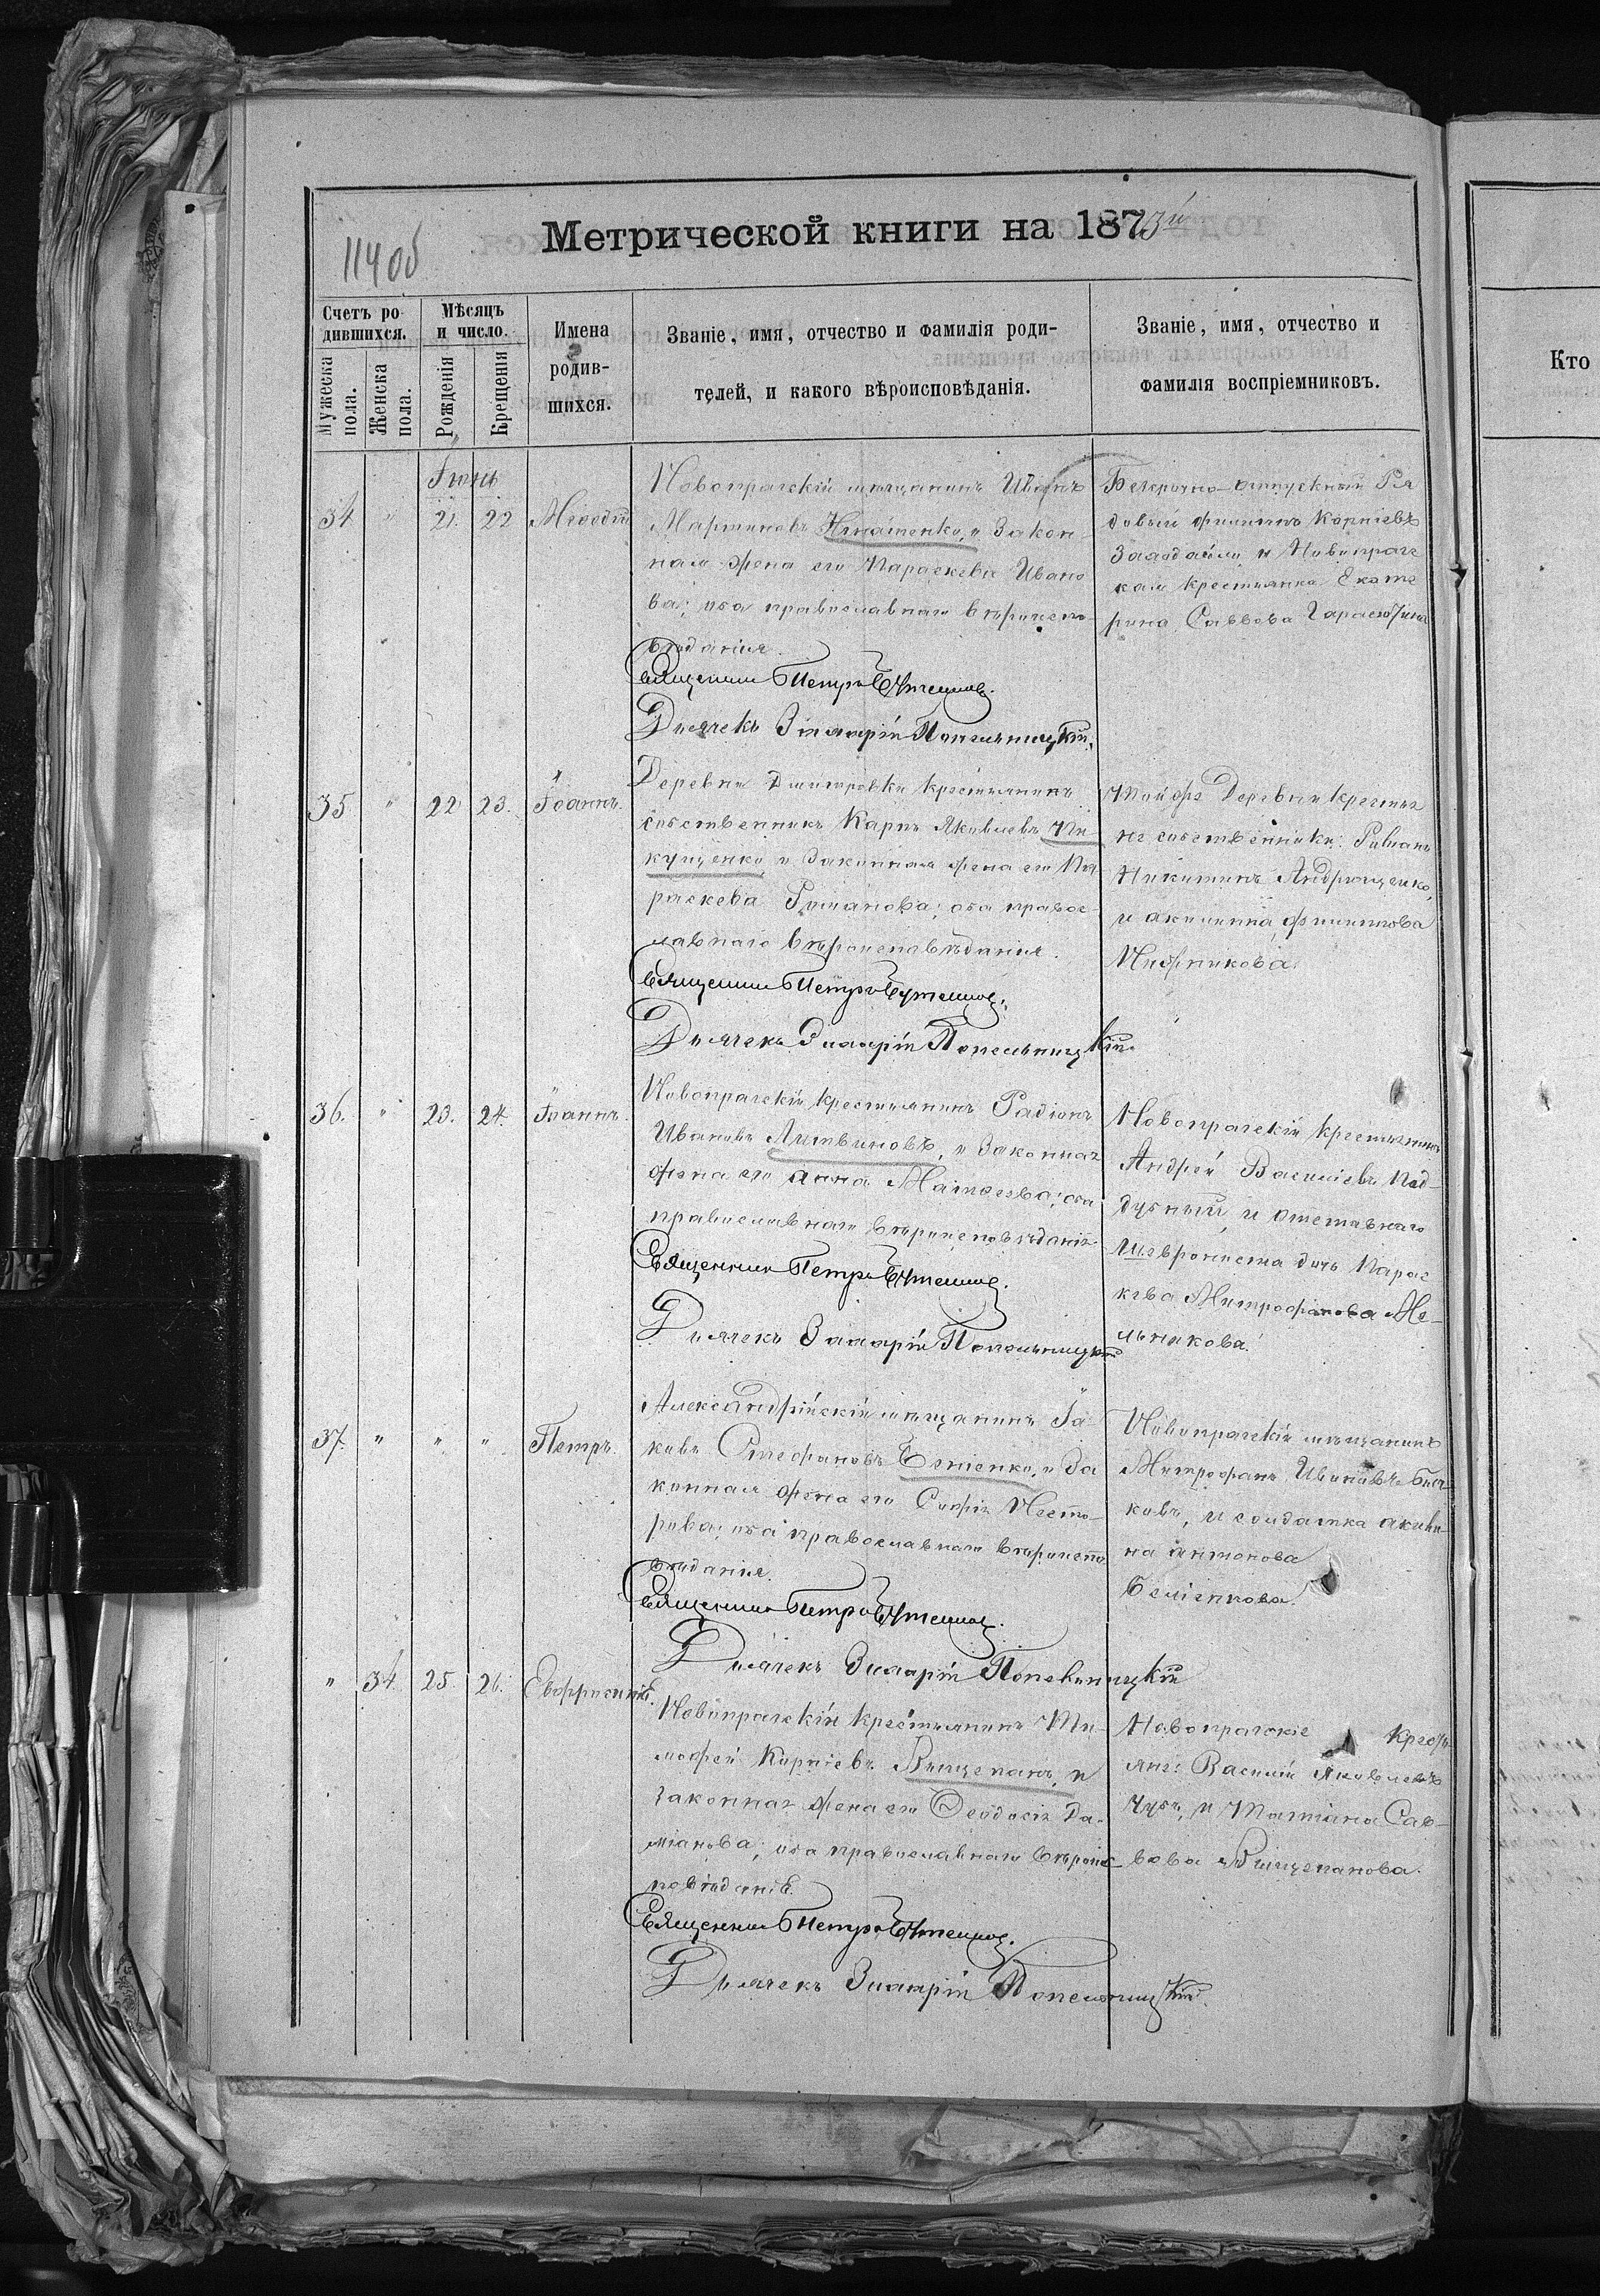 Метрической книги на 1873й
114 об
Счетъ ро-
дившихся.
Мужеска пола.
Женска пола.
Мѣсяцъ
и число.
Рожденія
Крещенія
Имена
родив-
шихся.
Званіе, имя, отчество и фамилія роди-
телей, и какого вѣроисповѣданія.
Званіе, имя, отчество и
фамилія воспріемниковъ.
Кто
Іюнь
34 " 21. 22 Меѳодій
Новопрагскій мѣщанинъ Иванъ
Мартиновъ Игнатенко, и закон-
ная жена его Параскева Ивано-
ва; оба православнаго вѣроиспо-
вѣданія.
Священникъ Петръ
Дьячекъ Иларій Попельницкій.
Безсрочно-отпускный Ря-
довый Филиппъ Корніевъ
и Новопраг-
кая крестьянка Екате
рина Саввова
35 " 22 23. Іоаннъ.
Деревни Дмитровки крестьянинъ
собственникъ Карпъ Яковлевъ
и законная жена его Па-
раскева Романова; оба правос-
лавнаго вѣроисповѣданія.
Священникъ Петръ
Дьячекъ Иларій Попельницкій.
Той же Деревни крестья-
не собственники: Романъ
Никитинъ Андрющенко,
и Акилина Филиппова
36. " 23. 24. Іоаннъ.
Новопрагскій крестьянинъ Радіонъ
Ивановъ Литвиновъ, и законная
жена его Анна Матѳеева; оба
православнаго вѣроисповѣданія
Священникъ Петръ
Дьячекъ Иларій Попельницкій
Новопрагскій крестьянинъ
Андрей Василіевъ Под-
дубный, и отставнаго
дочь Парас
кева Митрофанова Ме-
льникова.
37. " " " Петръ.
Александрійскій мѣщанинъ Іа-
ковъ Стефановъ и за
конная жена его Софія Несто-
рова; оба православнаго вѣроиспо
вѣданія.
Священникъ Петръ
Дьячекъ Иларій Попельницкій
Новопрагскій мѣщанинъ
Митрофанъ Ивановъ Быч-
ковъ, и солдатка Акили-
на Антонова
" 34. 25. 26. Евфросинія.
Новопрагскій крестьянинъ Ти-
мофей Корніевъ и
законная жена его Ѳеодосія Да-
міанова; оба православнаго вѣроис-
повѣданія.
Священникъ Петръ
Дьячекъ Иларій Попельницкій.
Новопрагскіе крестья-
яне: Василій Яковлевъ
Чубъ, и Татіана Сав-
вова